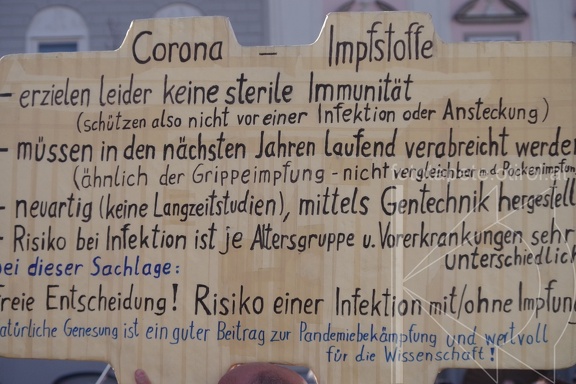 Corona – Impfstoffe
– erzielen leider keine sterile Immunität
(schützen also nicht vor einer Infektion oder Ansteckung)
– müssen in den nächsten Jahren laufend verabreicht werde
(ähnlich der Grippeimpfung - nicht vergleichbar m.d. Pockenimpfun
– neuartig (keine Langzeitstudien), mittels Gentechnik hergestell
- Risiko bei Infektion ist je Altersgruppe u. Vorerkrankungen sehr
unterschiedlich
ei dieser Sachlage:
reie Entscheidung! Risiko einer Infektion mit/ohne Impfun
atürliche Genesung ist ein guter Beitrag zur Pandemiebekämpfung und wertvoll
für die Wissenschaft!